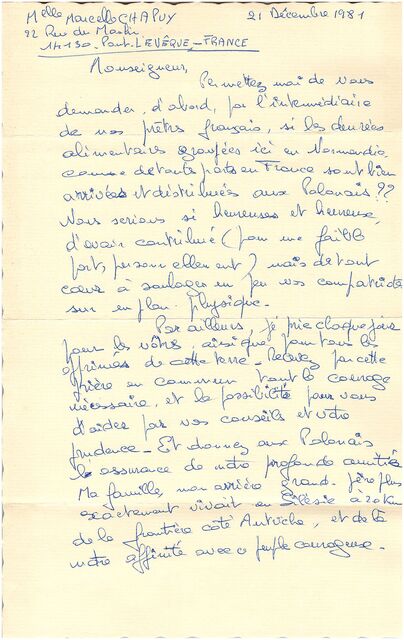 Melle Marcelle CHAPUY 21 Décembre 1981
22 Rue du Moulin
14130 - Pont-L'EVÊQUE - FRANCE
Monseigneur,
Permettez moi de vous
demander, d'abord, par l'intermédiaire
de nos prêtres français, si les denrées
alimentaires groupées ici en Normandie
comme de toutes parts en France sont bien
arrivées et distribuées aux Polonais ??
Nous serions si heureuses et heureux,
d'avoir contribué (pour une faible
part, personnellement) mais de tout
cœur à soulager un peu vos compatriotes
sur un plan physique.
Par ailleurs, je prie chaque jour
pour les vôtres, ainsi que pour tous les
opprimés de cette terre - Recevez par cette
prière en commun tout le courage
nécessaire, et la possibilité pour vous
d'aider par vos conseils et votre
prudence - Et donnez aux Polonais
l'assurance de notre profonde amitié
Ma famille, mon arrière grand-père plus
exactement vivait en Silésie à 20 Km
de la frontière côté Autriche, et de là
notre affinité avec ce peuple courageux.